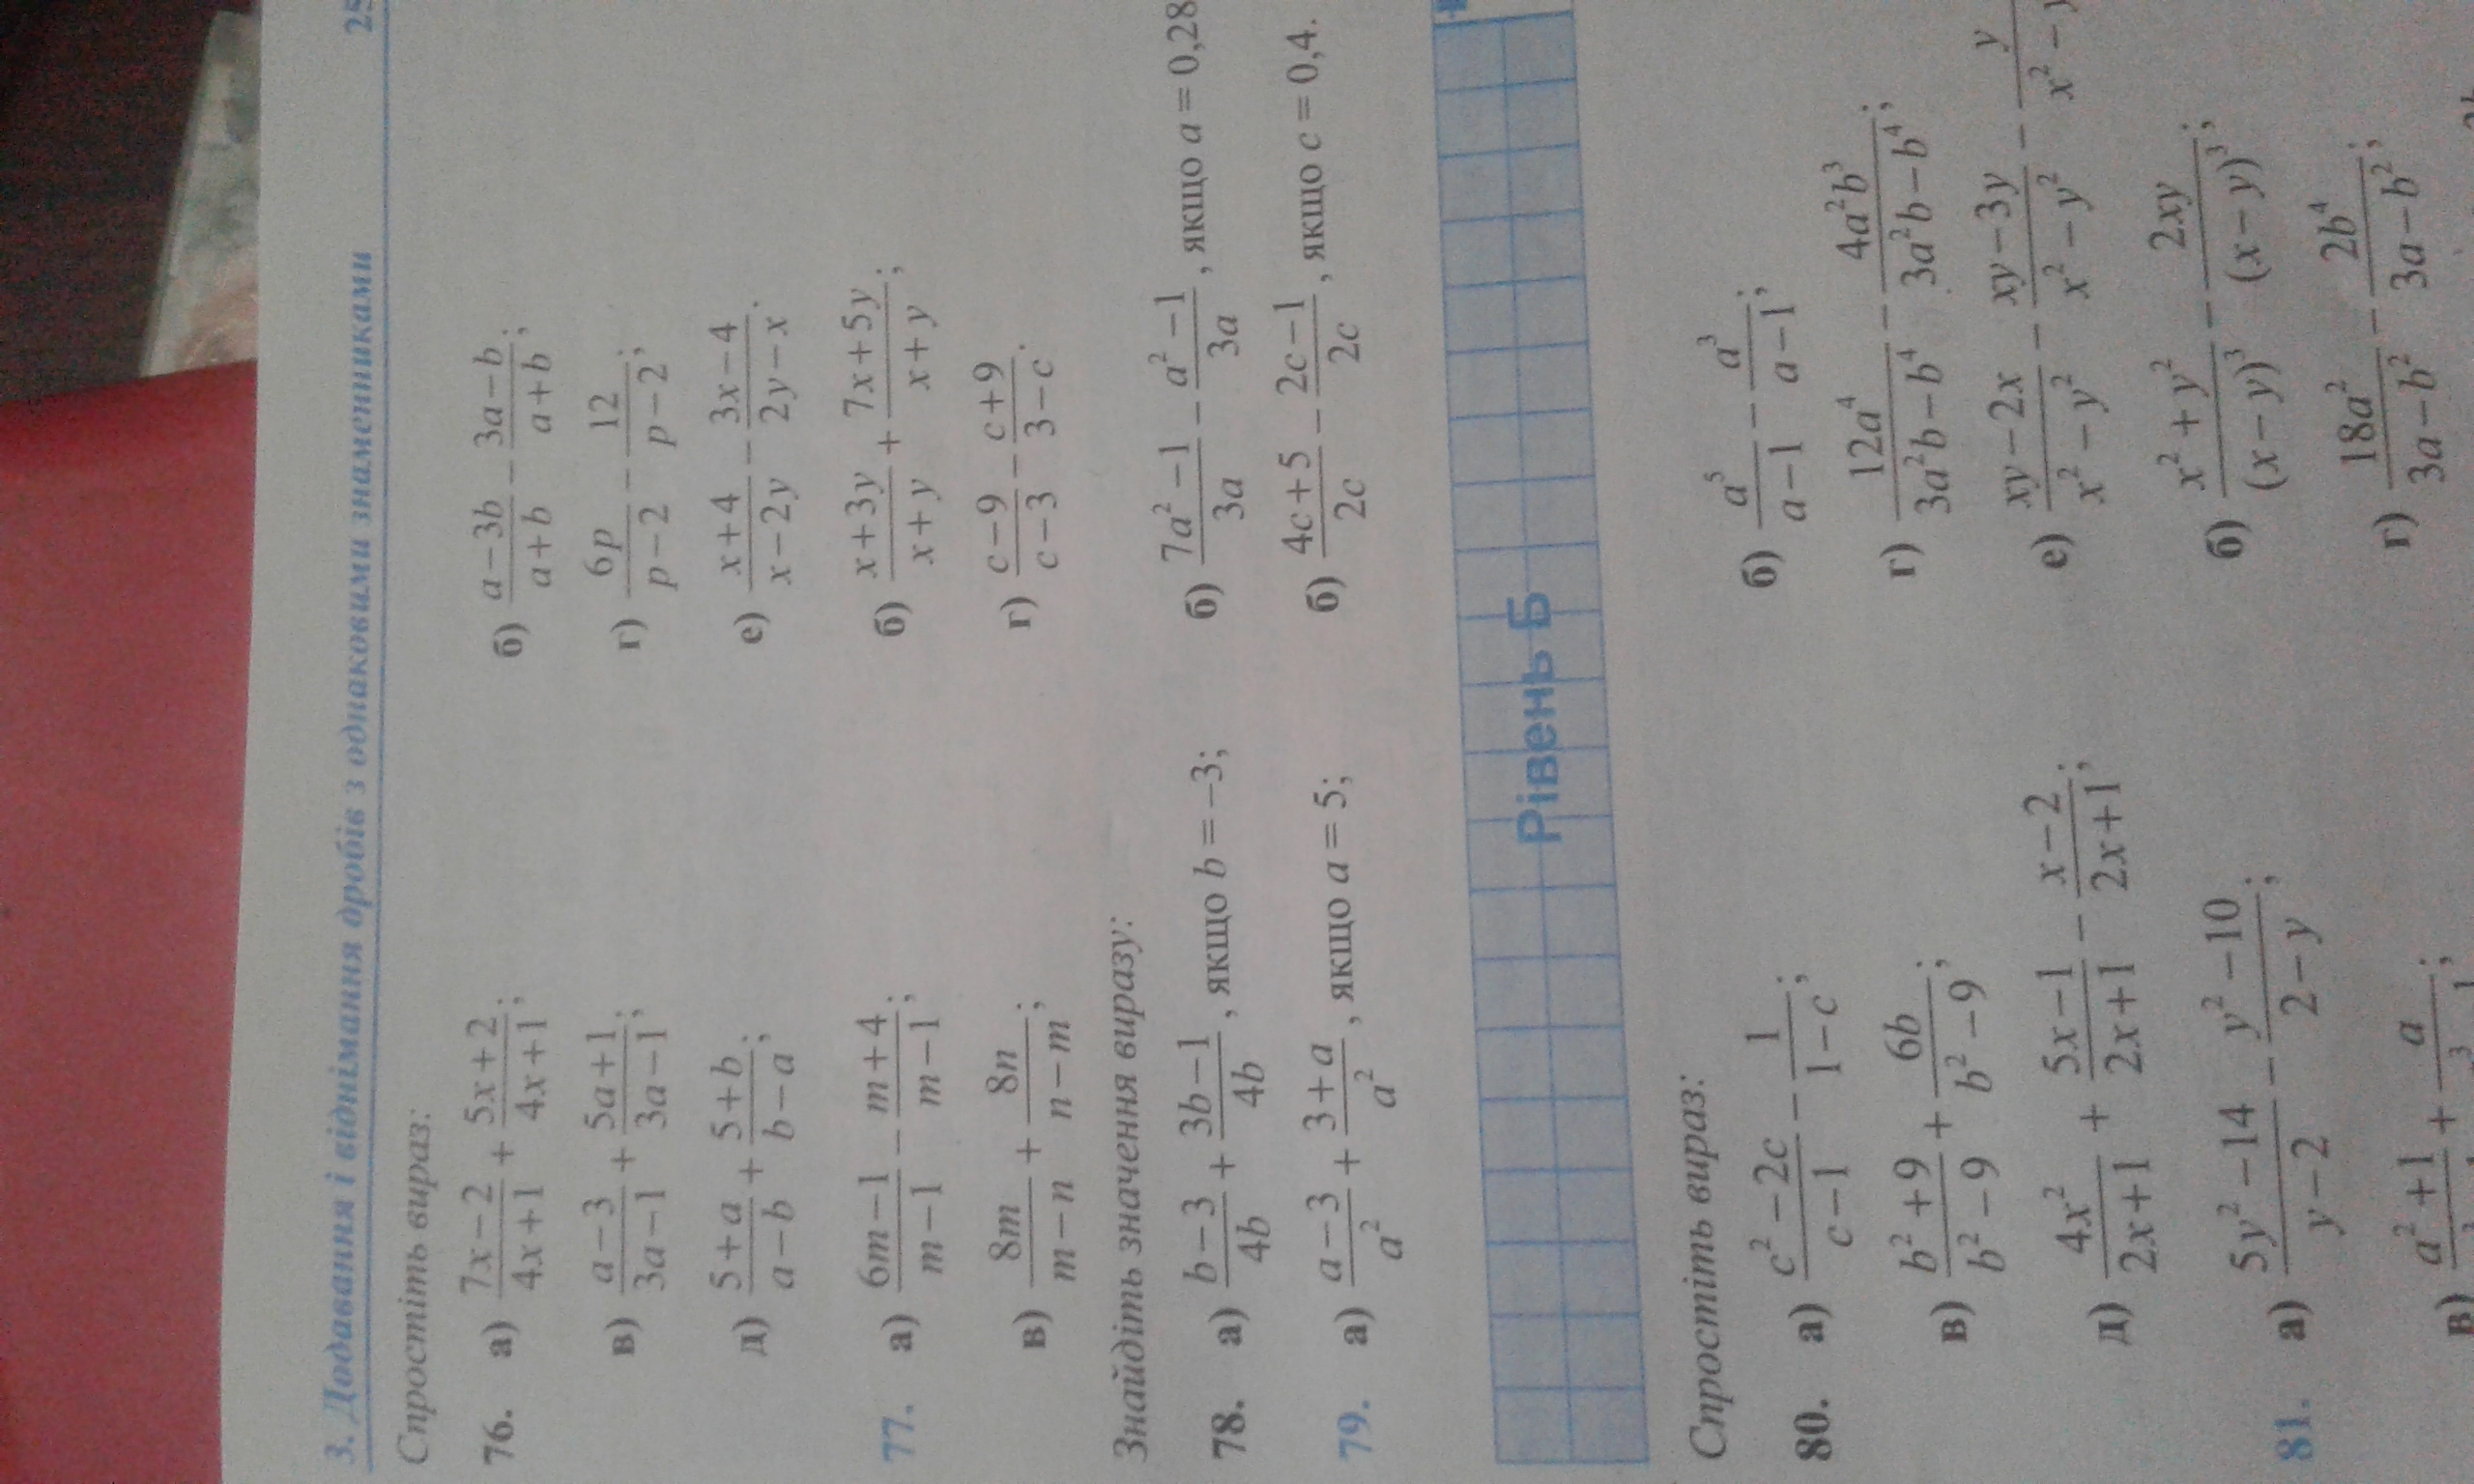 3. Додавання і віднімання дробів з однаковими знаменниками 25
Спростіть вираз:
76. а) (7x−2)/(4x+1) + (5x+2)/(4x+1); б) (a−3b)/(a+b) − (3a−b)/(a+b);
в) (a−3)/(3a−1) + (5a+1)/(3a−1); г) 6p/(p−2) − 12/(p−2);
д) (5+a)/(a−b) + (5+b)/(b−a); е) (x+4)/(x−2y) − (3x−4)/(2y−x).
77. а) (6m−1)/(m−1) − (m+4)/(m−1); б) (x+3y)/(x+y) + (7x+5y)/(x+y);
в) 8m/(m−n) + 8n/(n−m); г) (c−9)/(c−3) − (c+9)/(3−c).
Знайдіть значення виразу:
78. а) (b−3)/4b + (3b−1)/4b, якщо b = −3; б) (7a²−1)/3a − (a²−1)/3a, якщо a = 0,28
79. а) (a−3)/a² + (3+a)/a², якщо a = 5; б) (4c+5)/2c − (2c−1)/2c, якщо c = 0,4.
Рівень Б
Спростіть вираз:
80. а) (c²−2c)/(c−1) − 1/(1−c); б) a⁵/(a−1) − a³/(a−1);
в) (b²+9)/(b²−9) + 6b/(b²−9); г) 12a⁴/(3a²b−b⁴) − 4a²b³/(3a²b−b⁴);
д) 4x²/(2x+1) + (5x−1)/(2x+1) − (x−2)/(2x+1); е) (xy−2x)/(x²−y²) − (xy−3y)/(x²−y²) − y/(x²−
81. а) (5y²−14)/(y−2) − (y²−10)/(2−y); б) (x²+y²)/(x−y)³ − 2xy/(x−y)³;
в) (a²+1)/ + a/ ; г) 18a²/(3a−b²) − 2b⁴/(3a−b²);